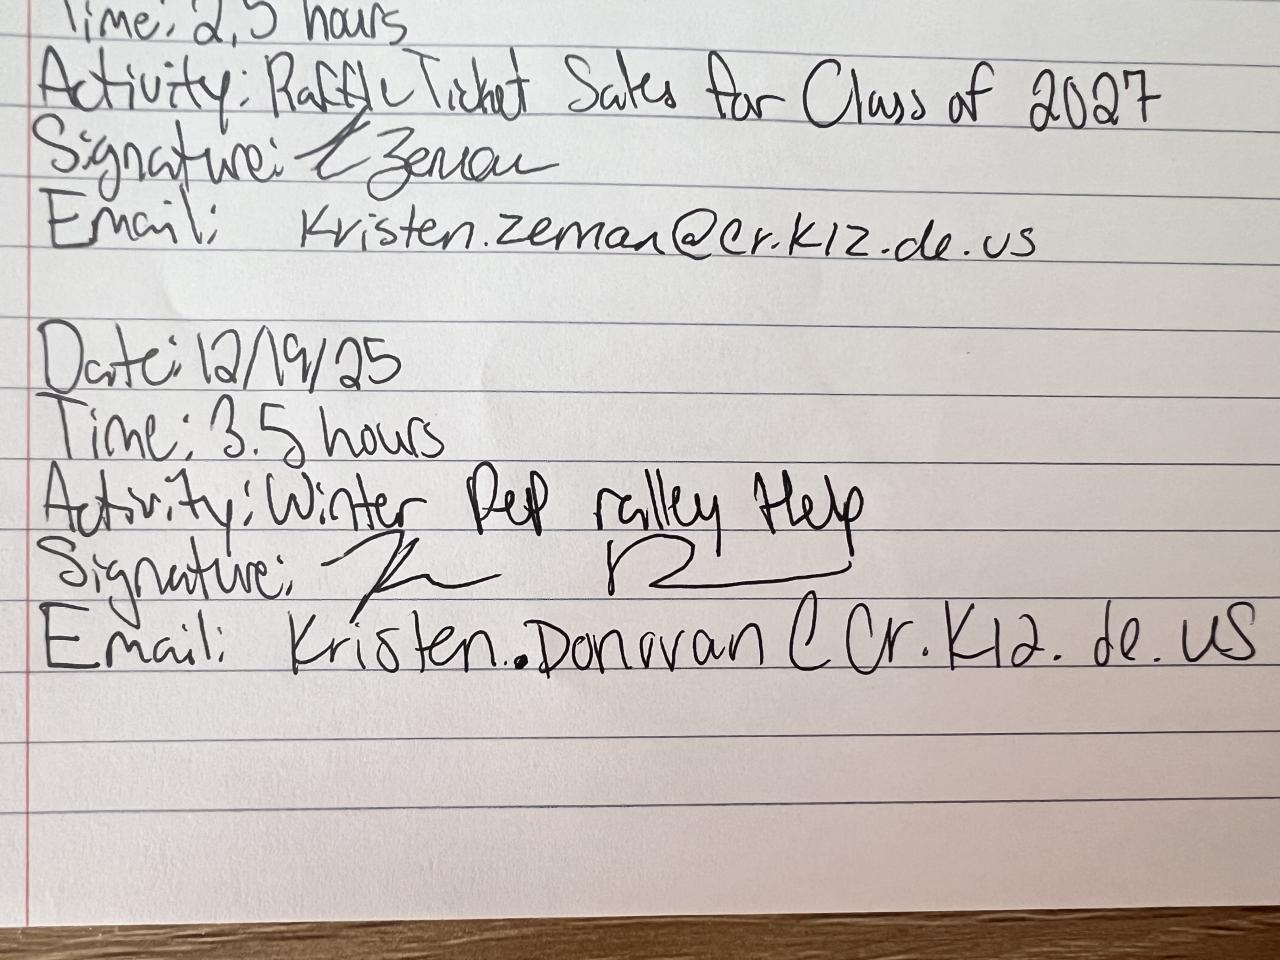 Time: 2,5 hours
Activity: Raffle Ticket Sales for Class of 2027
Signature: K Zeman
Email: Kristen.zeman@cr.k12.de.us
Date: 12/19/25
Time: 3.5 hours
Activity: Winter Pep ralley Help
Signature:
Email: Kristen.Donovan@cr.K12.de.us